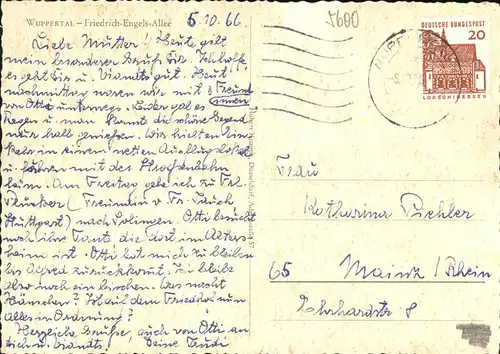 WUPPERTAL – Friedrich-Engels-Allee
5.10.66
5600
Liebe Mutter! Heute gilt
mein besonderer Gruß Dir. Ich hoffe
es geht Dir u. gut. Heut'
nachmittag waren wir mit 3 Freund
innen
von Otti unterwegs. Leider gab es
Regen u. man konnte die schöne Gegend
nur halb genießen. Wir hielten Ein
kehr in einem netten Ausflugslokal
u. fuhren mit der
heim. Am Freitag gehe ich zu Fr.
(Freundin v. Fr.
Stuttgart) nach Solingen. Otti besucht
noch ihre Tante die dort im Alters
heim ist. Otti bat mich zu bleiben
bis Alfred zurückkommt. Da bleibe
also noch ein bischen. Was macht
Hänschen? Ist auf dem Friedhof nun
alles in Ordnung?
Herzliche Grüße, auch von Otti an
Dich u. Deine
DEUTSCHE BUNDESPOST
20
LORSCH/HESSEN
Frau
Katharina Pichler
65 Mainz/Rhein
8